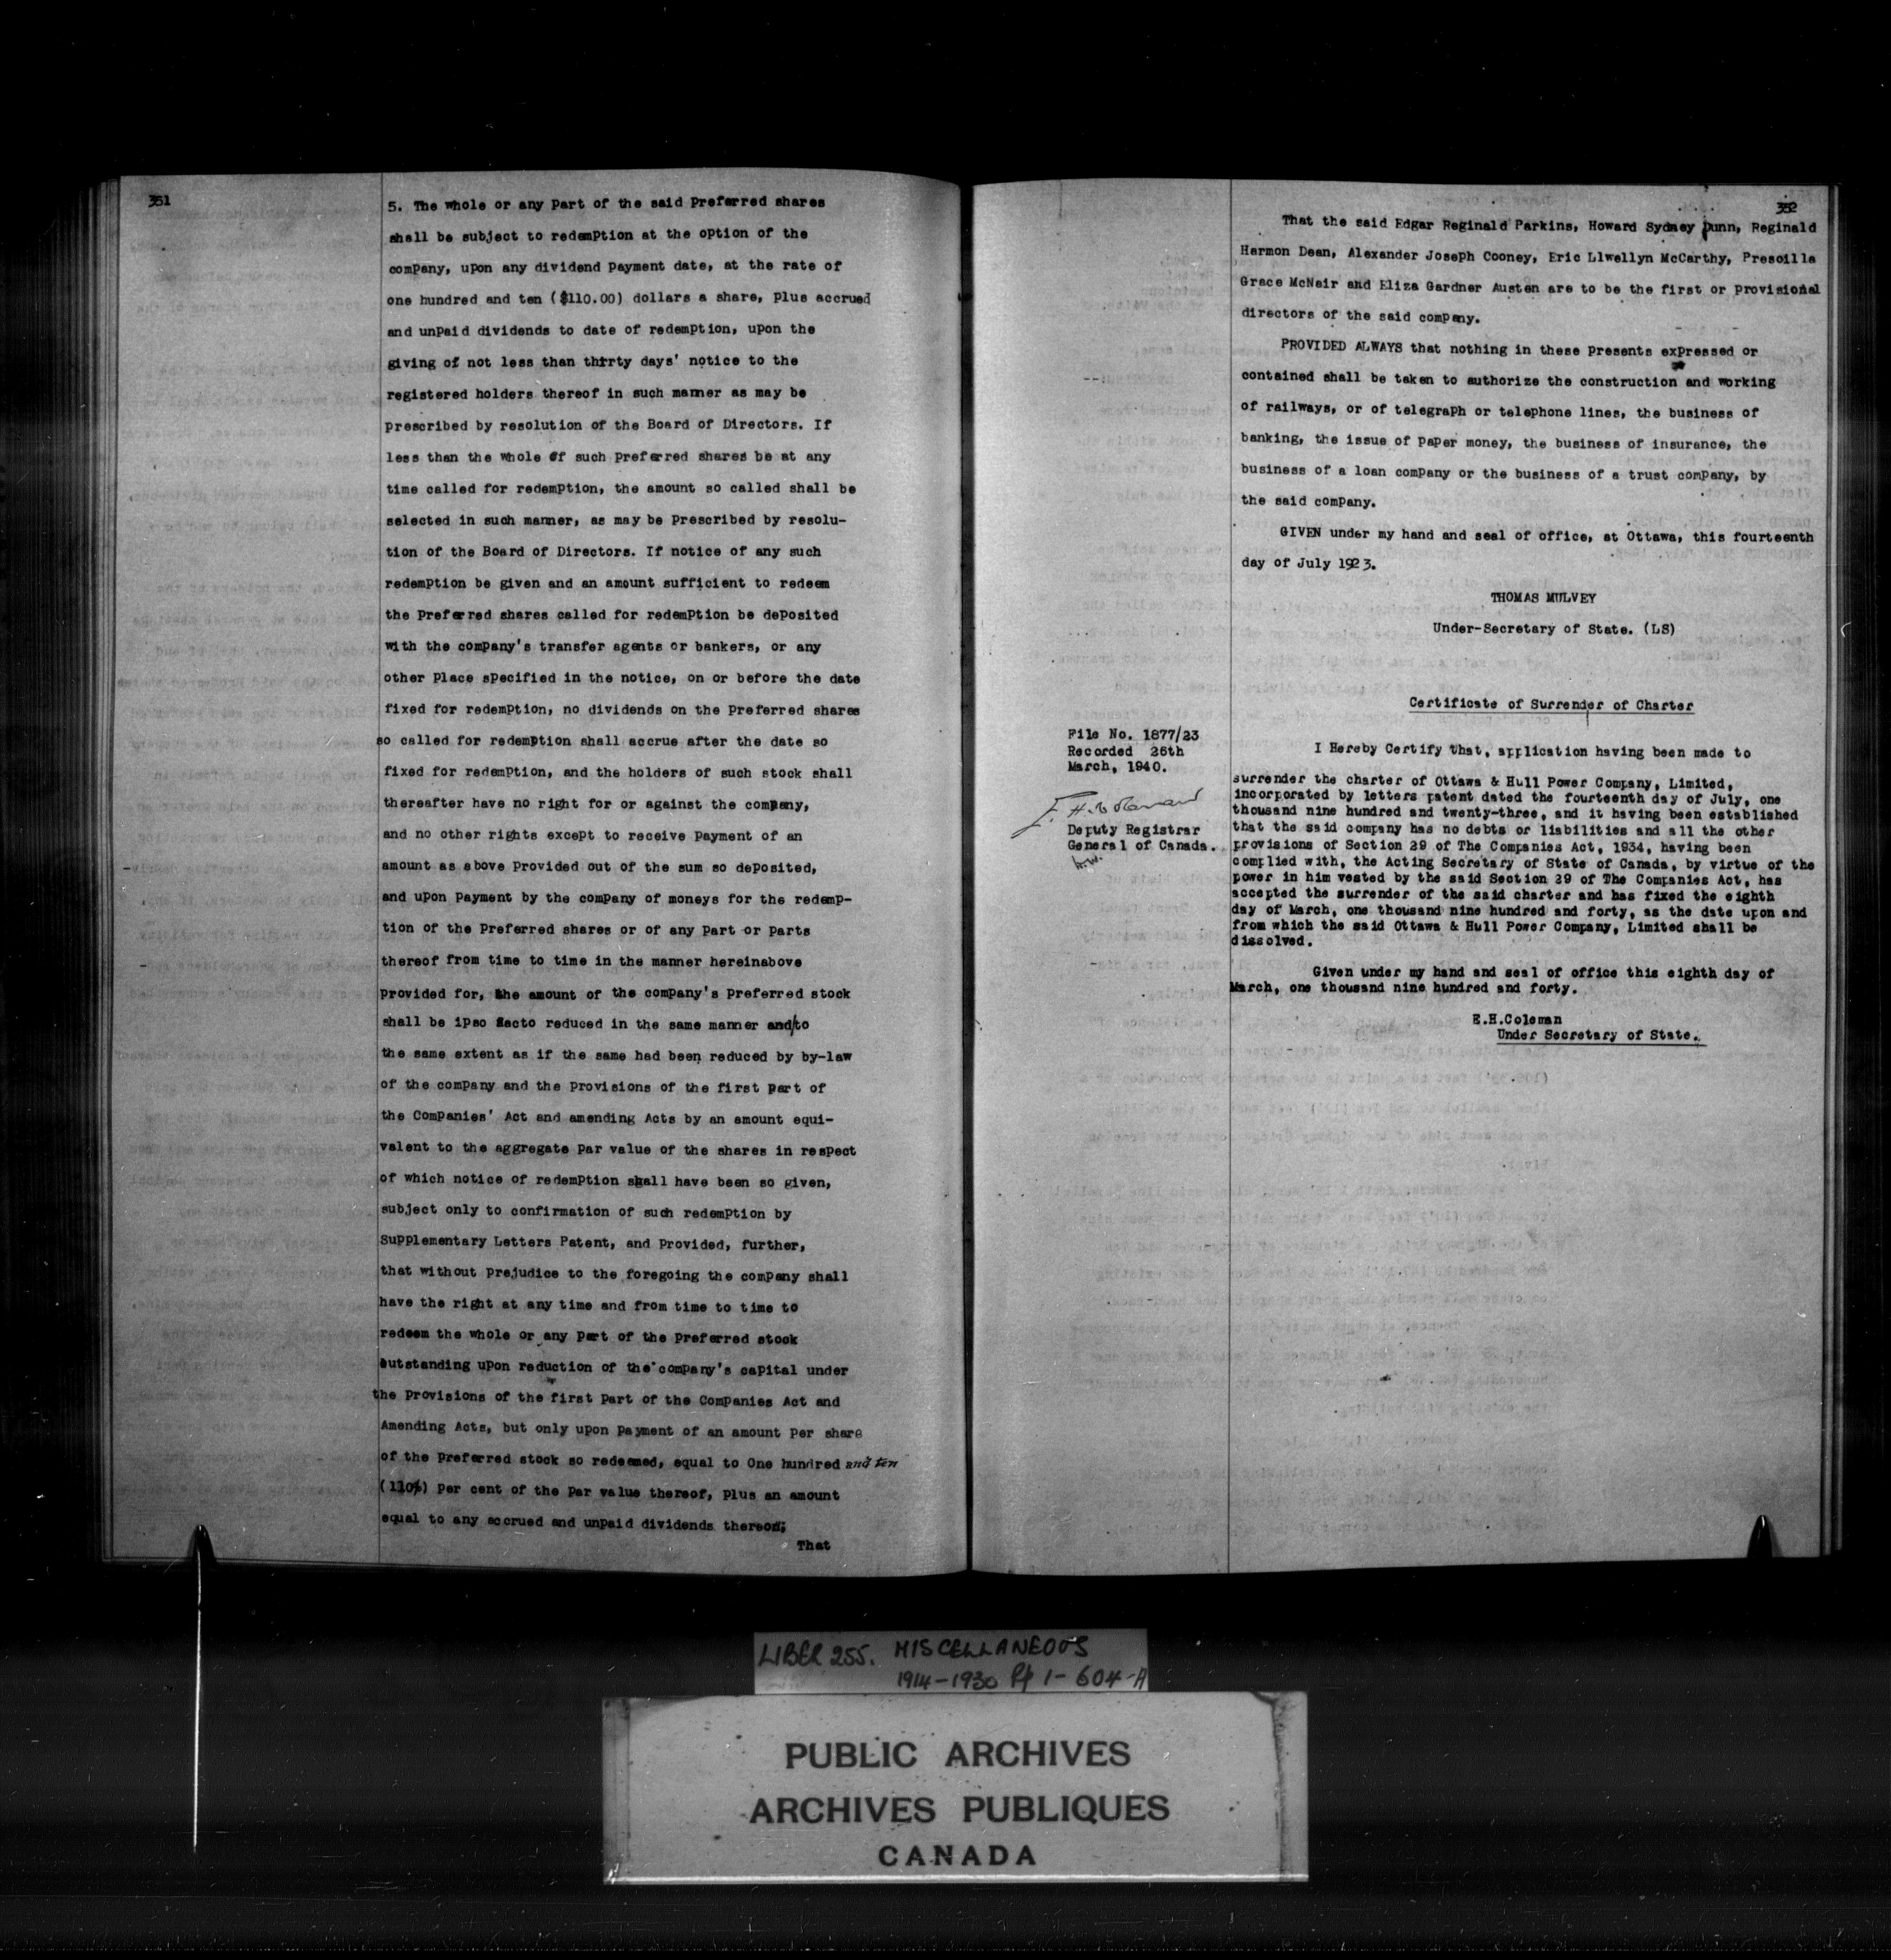 351
5. The whole or any part of the said Preferred shares
shall be subject to redemption at the option of the
company, upon any dividend payment date, at the rate of
one hundred and ten ($110.00) dollars a share, plus accrued
and unpaid dividends to date of redemption, upon the
giving of not less than thirty days' notice to the
registered holders thereof in such manner as may be
prescribed by resolution of the Board of Directors. If
less than the whole of such preferred shares be at any
time called for redemption, the amount so called shall be
selected in such manner, as may be prescribed by resolu-
tion of the Board of Directors. If notice of any such
redemption be given and an amount sufficient to redeem
the Preferred shares called for redemption be deposited
with the company's transfer agents or bankers, or any
other place specified in the notice, on or before the date
fixed for redemption, no dividends on the preferred shares
so called for redemption shall accrue after the date so
fixed for redemption, and the holders of such stock shall
thereafter have no right for or against the company,
and no other rights except to receive payment of an
amount as above provided out of the sum so deposited,
and upon payment by the company of moneys for the redemp-
tion of the Preferred shares or of any part or parts
thereof from time to time in the manner hereinabove
provided for, the amount of the company's preferred stock
shall be ipso facto reduced in the same manner and/to
the same extent as if the same had been reduced by by-law
of the company and the provisions of the first part of
the Companies' Act and amending Acts by an amount equi-
valent to the aggregate par value of the shares in respect
of which notice of redemption shall have been so given,
subject only to confirmation of such redemption by
Supplementary Letters Patent, and provided, further,
that without prejudice to the foregoing the company shall
have the right at any time and from time to time to
redeem the whole or any part of the preferred stock
outstanding upon reduction of the company's capital under
the provisions of the first part of the Companies Act and
Amending Acts, but only upon payment of an amount per share
of the preferred stock so redeemed, equal to One hundred and ten
(110%) per cent of the par value thereof, plus an amount
equal to any accrued and unpaid dividends thereon;
That
352
That the said Edgar Reginald Parkins, Howard Sydney Dunn, Reginald
Harmon Dean, Alexander Joseph Cooney, Eric Llwellyn McCarthy, Prescilla
Grace McNair and Eliza Gardner Austen are to be the first or provisional
directors of the said company.
PROVIDED ALWAYS that nothing in these presents expressed or
contained shall be taken to authorize the construction and working
of railways, or of telegraph or telephone lines, the business of
banking, the issue of paper money, the business of insurance, the
business of a loan company or the business of a trust company, by
the said company.
GIVEN under my hand and seal of office, at Ottawa, this fourteenth
day of July 1923.
THOMAS MULVEY
Under-Secretary of State. (LS)
Certificate of Surrender of Charter
File No. 1877/23
Recorded 26th
March, 1940.
Deputy Registrar
General of Canada.
I Hereby Certify that, application having been made to
surrender the charter of Ottawa & Hull Power Company, Limited,
incorporated by letters patent dated the fourteenth day of July, one
thousand nine hundred and twenty-three, and it having been established
that the said company has no debts or liabilities and all the other
provisions of Section 29 of The Companies Act, 1934, having been
complied with, the Acting Secretary of State of Canada, by virtue of the
power in him vested by the said Section 29 of The Companies Act, has
accepted the surrender of the said charter and has fixed the eighth
day of March, one thousand nine hundred and forty, as the date upon and
from which the said Ottawa & Hull Power Company, Limited shall be
dissolved.
Given under my hand and seal of office this eighth day of
March, one thousand nine hundred and forty.
E.H.Coleman
Under Secretary of State.
LIBER 255. MISCELLANEOUS
1914-1930 Pp 1-604-A
PUBLIC ARCHIVES
ARCHIVES PUBLIQUES
CANADA